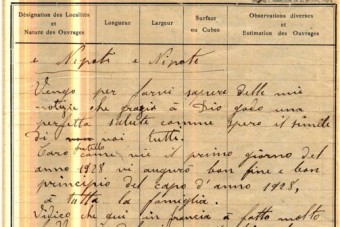 Désignation des Localités
et
Nature des Ouvrages
Longueur
Largeur
Surface
ou Cubes
Observations diverses
et
Estimation des Ouvrages
e Nipoti e Nipote
Vengo per farvi sapere delle mie
notizie che grazio à Dio godo una
perfetta salute comme spero il simile
di noi tutti.
fratello
Caro come nie il primo giorno del
anno 1928 vi auguro bon fine e bon
principio del capo d'anno 1928,
à tutta la famiglia.
che qui in francia à fatto molto